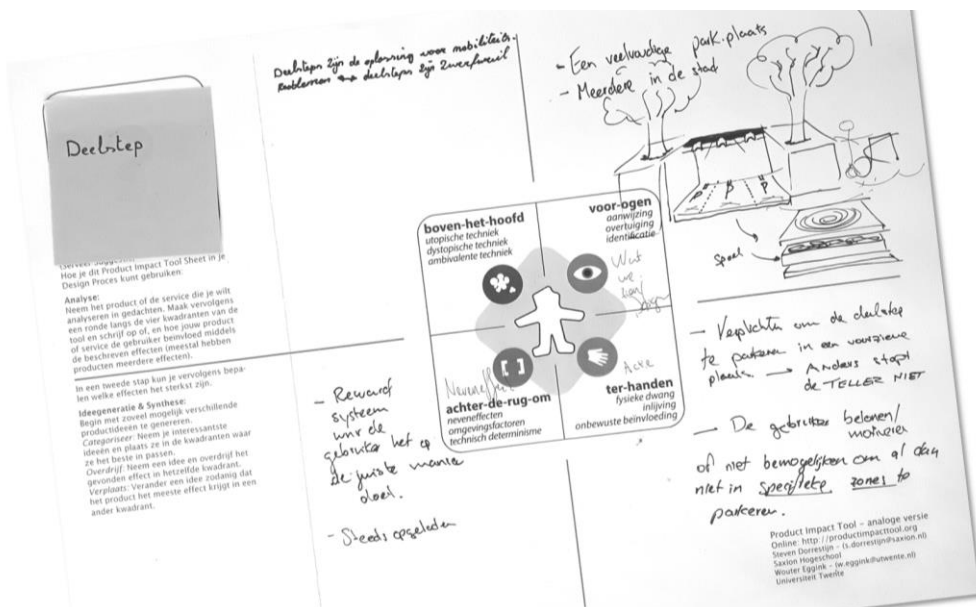 Deelstep
Hoe je dit Product Impact Tool Sheet in je
Design Proces kunt gebruiken:
Analyse:
Neem het product of de service die je wilt
analyseren in gedachten. Maak vervolgens
een ronde langs de vier kwadranten van de
tool en schrijf op of, en hoe jouw product
of service de gebruiker beinvloed middels
de beschreven effecten (meestal hebben
producten meerdere effecten).
In een tweede stap kun je vervolgens bepa-
len welke effecten het sterkst zijn.
Ideegeneratie & Synthese:
Begin met zoveel mogelijk verschillende
productideeen te genereren.
Categoriseer: Neem je interessantste
ideeen en plaats ze in de kwadranten waar
ze het beste in passen.
Overdrijf: Neem een idee en overdrijf het
gevonden effect in hetzelfde kwadrant.
Verplaats: Verander een idee zodanig dat
het product het meeste effect krijgt in een
ander kwadrant.
Deelsteps zijn de oplossing voor mobiliteits-
deelsteps zijn zwerfvuil
- Een veelvoudige park.plaats
- Meerdere in de stad
P P P
boven-het-hoofd
utopische techniek
dystopische techniek
ambivalente techniek
voor-ogen
aanwijzing
overtuiging
identificatie
Wat
we
Neveneffect
achter-de-rug-om
neveneffecten
omgevingsfactoren
technisch determinisme
ter-handen
fysieke dwang
inlijving
onbewuste beinvloeding
- Reward
systeem
de
gebruiker het op
de juiste manier
doet.
- Steeds opgeladen
→ Verplichten om de deelstep
te parkeren in een voorziene
plaats. → Anders stopt
de TELLER NIET
→ De gebruiker belonen/
of niet om al dan
niet in specifieke zones te
parkeren.
Product Impact Tool – analoge versie
Online: http://productimpacttool.org
Steven Dorrestijn – (s.dorrestijn@saxion.nl)
Saxion Hogeschool
Wouter Eggink – (w.eggink@utwente.nl)
Universiteit Twente